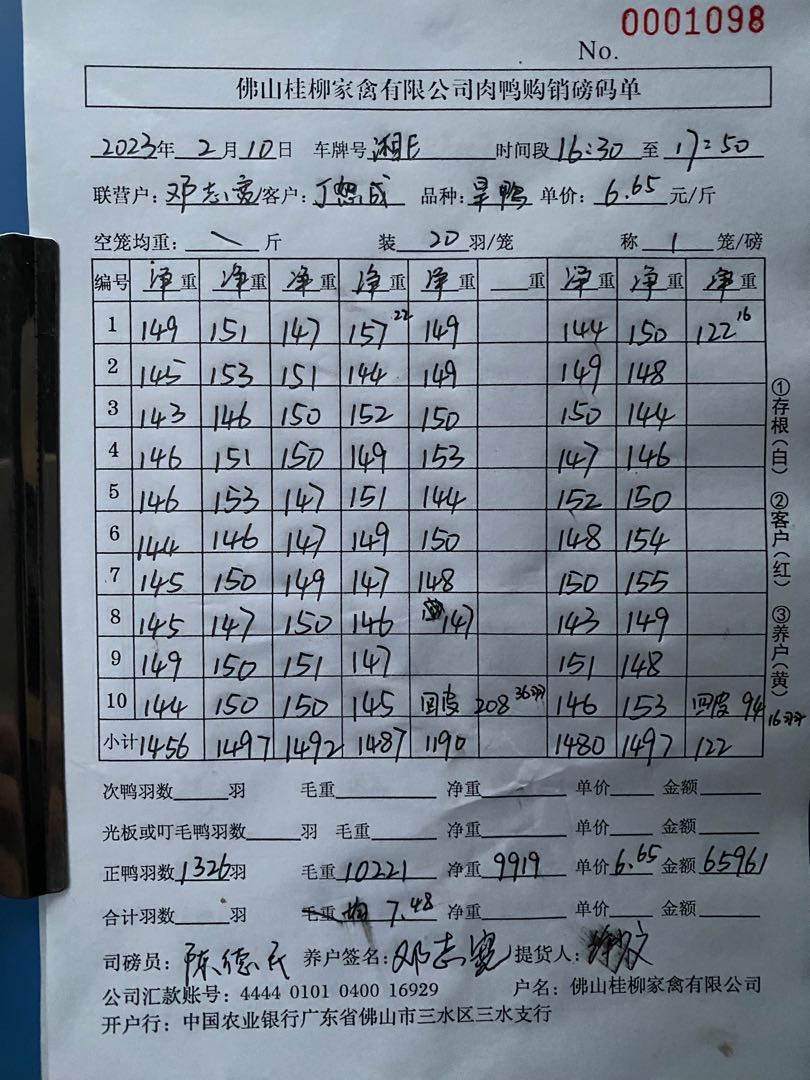 No. 0001098
佛山桂柳家禽有限公司肉鸭购销磅码单
2023年 2月10日 车牌号 湘E 时间段 16:30 至 17:50
联营户: 邓志宽 客户: 丁 成 品种: 旱鸭 单价: 6.65 元/斤
空笼均重: \ 斤 装 20 羽/笼 称 1 笼/磅
编号 净重 净重 净重 净重 净重 重 净重 净重 净重
1 149 151 147 157 22 149 144 150 122 16
2 145 153 151 144 149 149 148
3 143 146 150 152 150 150 144
4 146 151 150 149 153 147 146
5 146 153 147 151 144 152 150
6 144 146 147 149 150 148 154
7 145 150 149 147 148 150 155
8 145 147 150 146 147 143 149
9 149 150 151 147 151 148
10 144 150 150 145 回皮 208 36羽 146 153 回皮 94 16羽
小计 1456 1497 1492 1487 1190 1480 1497 122
次鸭羽数 羽 毛重 净重 单价 金额
光板或叮毛鸭羽数 羽 毛重 净重 单价 金额
正鸭羽数 1326羽 毛重 10221 净重 9919 单价 6.65 金额 65961
合计羽数 羽 毛重 均 7.48 净重 单价 金额
司磅员: 陈德民 养户签名: 邓志宽 提货人:
公司汇款账号: 4444 0101 0400 16929 户名: 佛山桂柳家禽有限公司
开户行: 中国农业银行广东省佛山市三水区三水支行
①存根(白) ②客户(红) ③养户(黄)